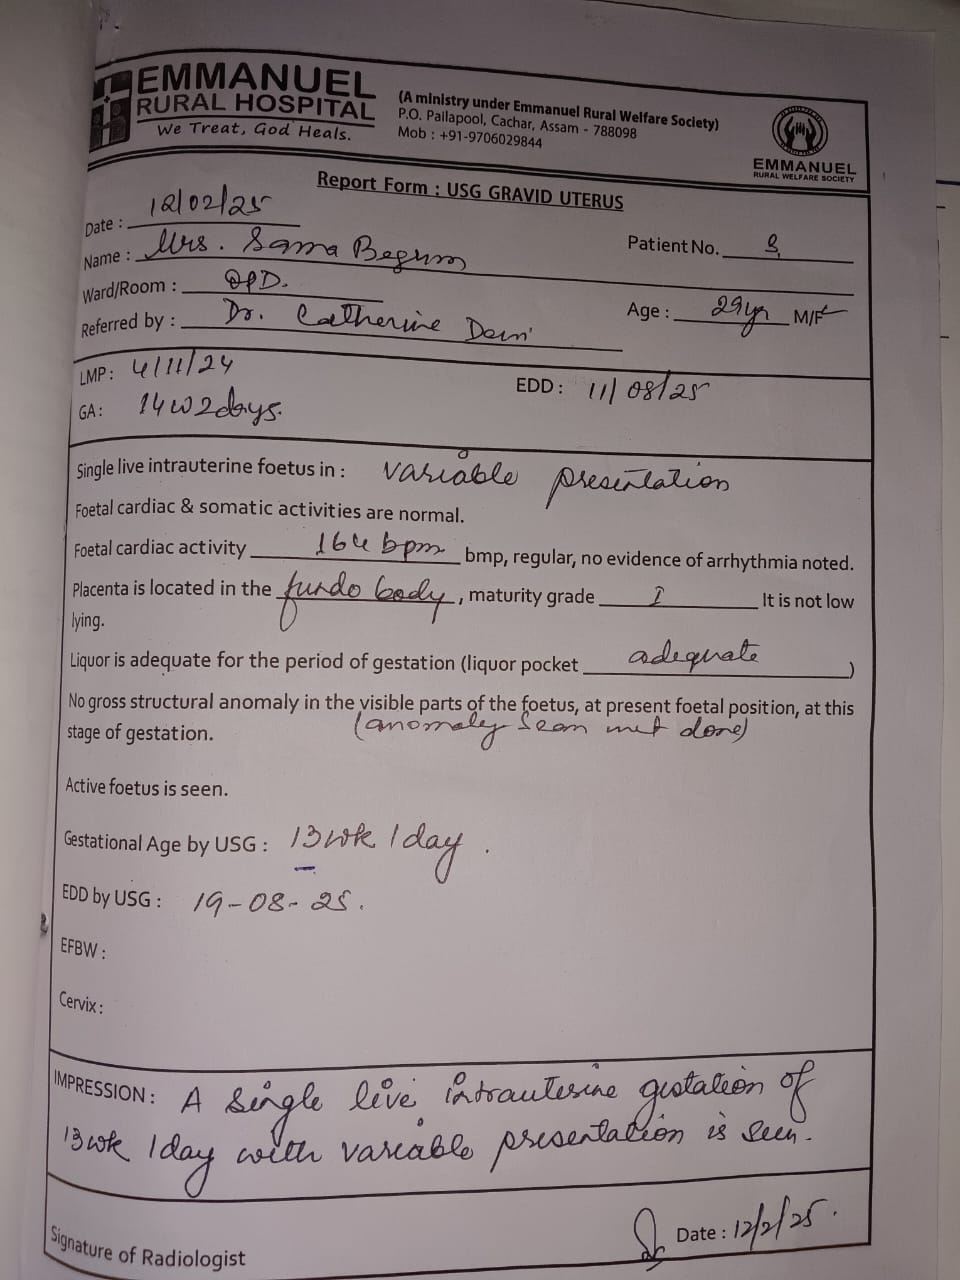 EMMANUEL
RURAL HOSPITAL
We Treat, God Heals.
(A ministry under Emmanuel Rural Welfare Society)
P.O. Pailapool, Cachar, Assam - 788098
Mob : +91-9706029844
EMMANUEL
RURAL WELFARE SOCIETY
Report Form : USG GRAVID UTERUS
Date : 12/02/25
Name : Mrs. Sama Begum Patient No. 3
Ward/Room : OPD. Age : 29yr M/F
Referred by : Dr. Catherine
LMP : 4/11/24 EDD : 11/08/25
GA : 14w2days.
Single live intrauterine foetus in : variable presentation
Foetal cardiac & somatic activities are normal.
Foetal cardiac activity 164 bpm bmp, regular, no evidence of arrhythmia noted.
Placenta is located in the fundo body, maturity grade I It is not low
lying.
Liquor is adequate for the period of gestation (liquor pocket adequate)
No gross structural anomaly in the visible parts of the foetus, at present foetal position, at this
stage of gestation. (anomaly scan not done)
Active foetus is seen.
Gestational Age by USG : 13wk 1day.
EDD by USG : 19-08-25.
EFBW :
Cervix :
IMPRESSION : A single live intrauterine gestation of
13wk 1day with variable presentation is seen.
Signature of Radiologist Date : 12/2/25.